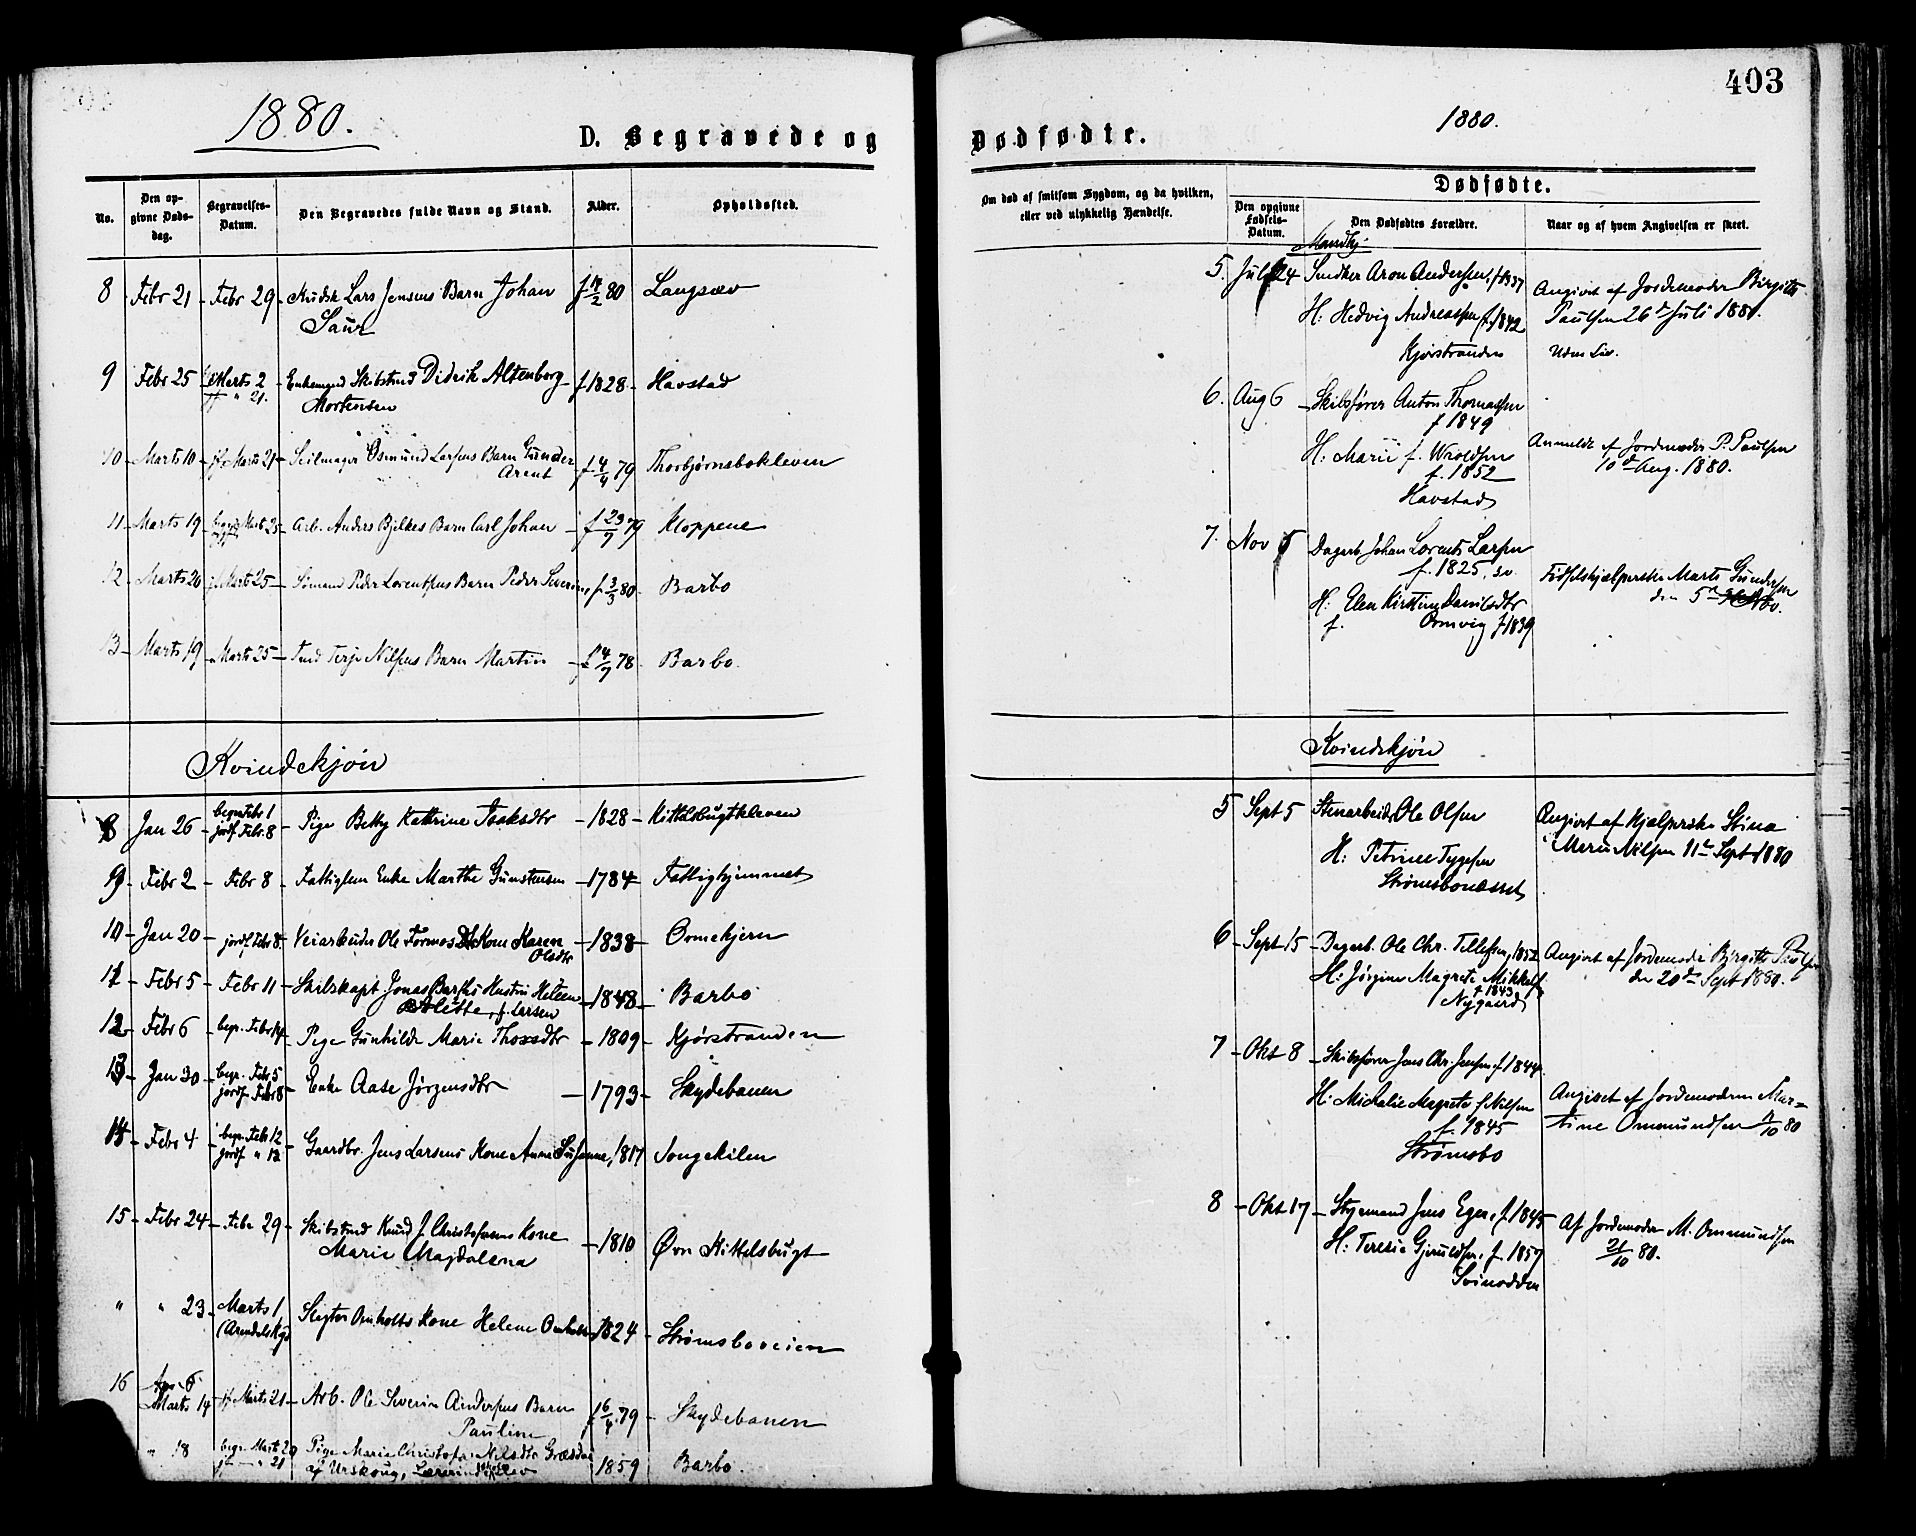 1880.
D. Begravede og
No.
Den op-
givne Døds-
dag.
Begravelses-
Datum.
Den Begravedes fulde Navn og Stand.
Alder.
Opholdssted.
8 Febr 21 Febr 29 Kudsk Lars Jensens Barn Johan f 80 Langsæv
9 Febr 25 Marts 2 Enkemand Skibstmd Didrik Altenborg f 1828 Havstad
" 21.
Mortensen
10 Marts 10 jf Marts 21 Seilmager Osmund Larsens Barn Gunder f 4/4 79 Thorbjørnsbokleven
Arent
11 Marts 19 Marts 25 Arb. Anders Bjelkes Barn Carl Johan f 23/7 79 Kloppene
12 Marts 20 Marts 25 Sömand Peder Lorentsens Barn Peder Severin f 3/3 80 Barbo
13 Marts 19 Marts 25 Terje Nilsens Barn Martin f 4/7 78 Barbo.
Kvindekjön
8 Jan 26 begr. Febr 1 Pige Betty Kathrine Isaksdtr 1828 Kittelsbugtkleven
jordf. Febr. 8
9 Febr 2 Febr 8 Fattiglem Enke Marthe Gunstensen 1784 Fattighjemmet
10 Jan 20 jordf Febr 8 Veiarbeider Ole Tormos Kone Karen 1838 Ormekjern
Olsdtr
11 Febr 5 Febr 11 Skibskapt Jonas Barths Hustru Helene 1848 Barbo
Aolette, f. Larsen
12 Febr 6 begr. Febr 14 Pige Gunhilde Marie Thorsdtr 1809 Kjørstranden
13 Jan 30 begr. Febr 5 Enke Aase Jørgensdtr 1793 Skydebanen
jordf Febr 8
14 Febr 4 begr. Febr 12 Gaardbr. Jens Larsens Kone Anne Susanne, 1817 Songekilen
jordf " 12
15 Febr 24 Febr 29 Skibstmd Knud J. Christofersens Kone 1810 Øvre Kittelsbugt
Marie Magdalena
" " 23 Marts 1 Omholts Kone Helene Omholt 1824 Strømsboveien
(Arendals Kg)
16 Marts 14 jf Marts 21 Arb. Ole Severin Andersens Barn f 16/4 79 Skydebanen
Pauline
" 18 begr Marts 20 Pige Marie Christofa Nilsdtr 1859 Barbo.
jf " 21 af Urskoug,
403
1880.
Dødfødte.
Om død af smitsom Sygdom, og da hvilken,
eller ved ulykkelig Hændelse.
Dødfødte.
Den opgivne
Fødsels-
Datum.
Den Dødfødtes Forældre.
Naar og af hvem Angivelsen er skeet.
Mandkj.
5. Juli 24 Snedker Aron Andersen, f 1837 Angivet af Jordemoder Birgitte
H: Hedvig Andreassen f. 1842 Paulsen 26de Juli 1880.
Kjørstranden Uden Liv.
6. Aug 6 Skibsfører Anton Thomassen
f 1849
H: Marie f. Wroldsen Anmeldt af Jordemoder P. Paulsen
f. 1852 10de Aug. 1880.
Havstad
7. Nov 5 Dagarb. Johan Lorents Larsen
f. 1825, Fødselshjælperske Marte Gundersen
H: Elen Kirstine Danielsdtr den 5te Nov.
f. Ormvig f 1839
Kvindekjön
5 Sept 5 Stenarbeider Ole Olsen Angivet af Hjælperske Stina
H: Petrine Tygesen Maren Nilsen 11te Sept 1880
Strømsbonesset
6 Sept 15 Dagarb. Ole Chr. Tellefsen, 1852 Angivet af Jordemoder Birgitte Paulsen
H: Jørgine Magrete Mikkels den 20de Sept 1880.
f 1843
Nygaard
7 Okt 8 Skibsfører Jens Chr. Jensen f 1844
H: Michalie Magrete f. Nilsen Angivet af Jordemoderen Mar-
f. 1845 tine Ommundsen /10 80
Strømsbo
8 Okt 17 Styrmand Jens Eger, f. 1845 Af Jordemoder M. Ommundsen
H: Teresie Gjeruldsen, f. 1857 21/10 80.
Svinodden